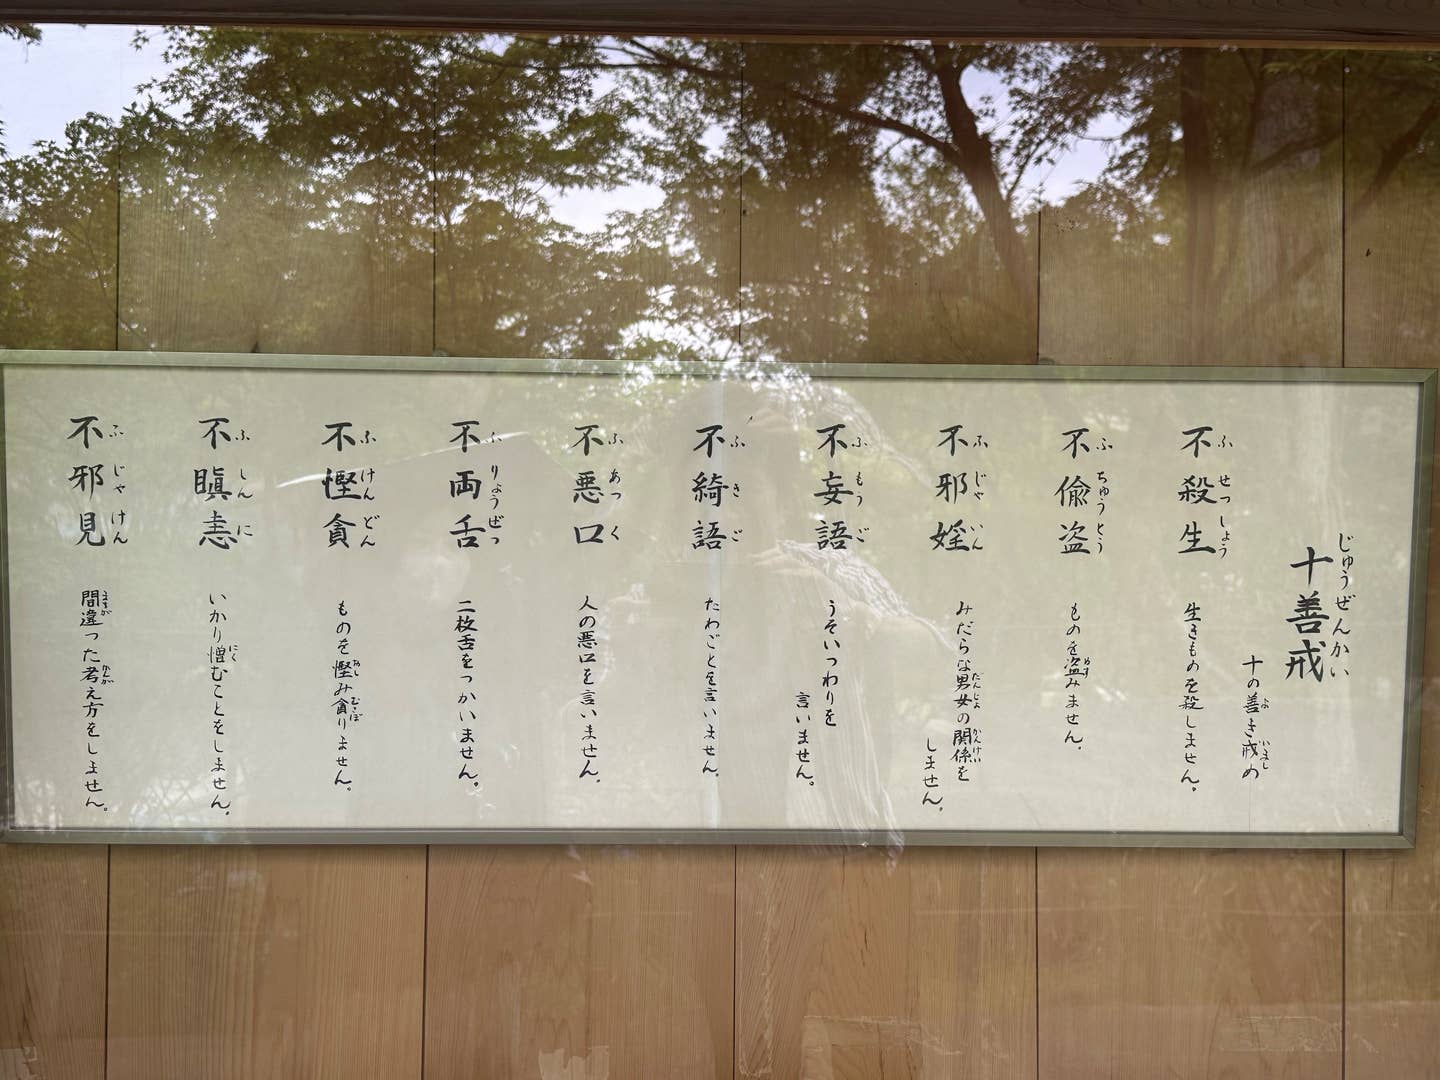 十善戒
じゅうぜんかい
十の善き戒め
よ いまし
不殺生
ふせっしょう
生きものを殺しません。
不偸盗
ふちゅうとう
ものを盗みません。
ぬす
不邪婬
ふじゃいん
みだらな男女の関係を
だんじょ かんけい
しません。
不妄語
ふもうご
うそいつわりを
言いません。
不綺語
ふきご
たわごとを言いません。
不悪口
ふあっく
人の悪口を言いません。
不両舌
ふりょうぜつ
二枚舌をつかいません。
不慳貪
ふけんどん
ものを慳み貪りません。
おし むさぼ
不瞋恚
ふしんに
いかり憎むことをしません。
にく
不邪見
ふじゃけん
間違った考え方をしません。
まちが かんが